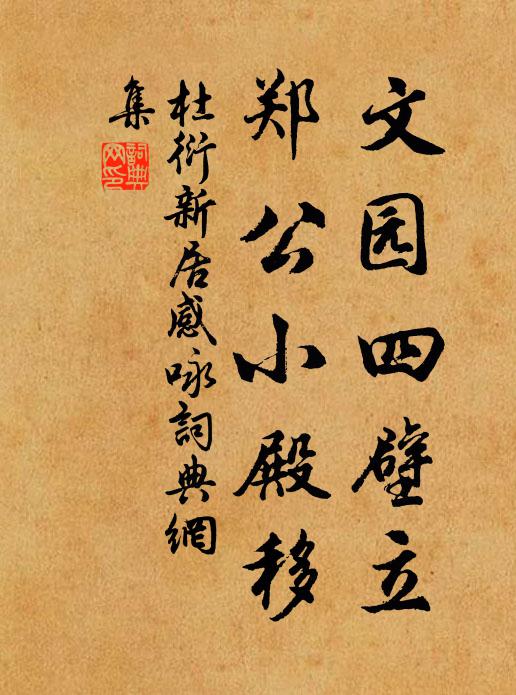 文园四壁立
郑公小殿移
杜衍新居感咏詞典網
集
詞典
网印